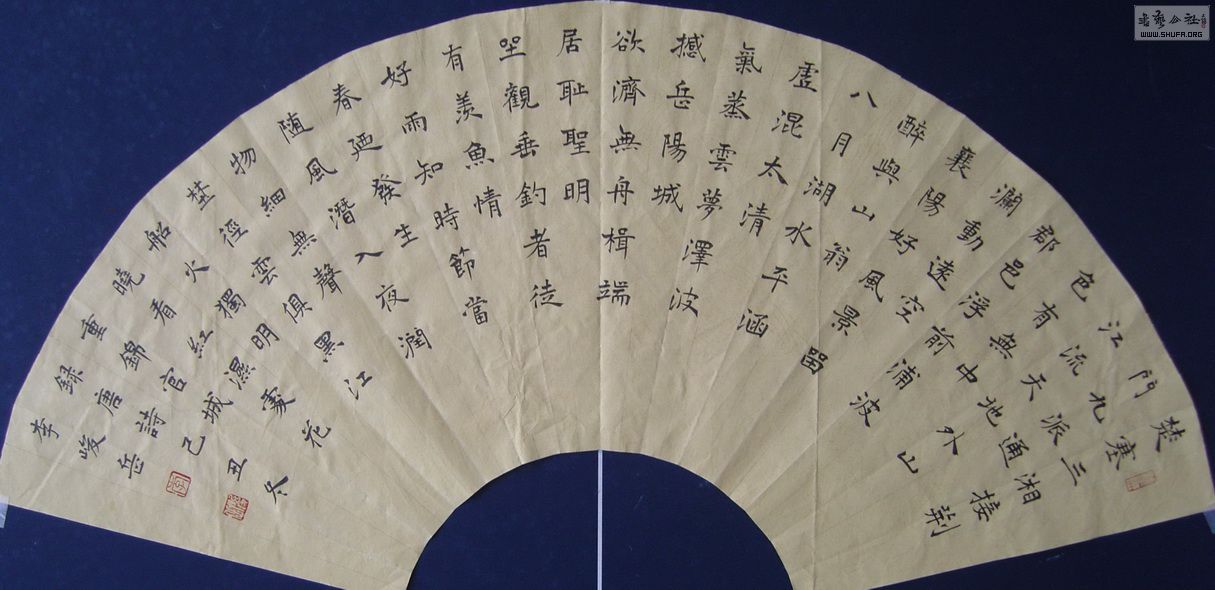 楚塞三湘接荊
門九派通
江流天地外山
色有無中
郡邑浮前浦波
瀾動遠空
襄陽好風景留
醉與山翁
八月湖水平涵
虛混太清
氣蒸雲夢澤波
撼岳陽城
欲濟無舟楫端
居恥聖明
坐觀垂釣者徒
有羨魚情
好雨知時節當
春廼發生
随風潛入夜潤
物細無聲
埜徑雲俱黑江
船火獨明
曉看紅濕處花
重錦官城
録唐詩己丑冬
李峻岳
書藝公社
WWW.SHUFA.ORG